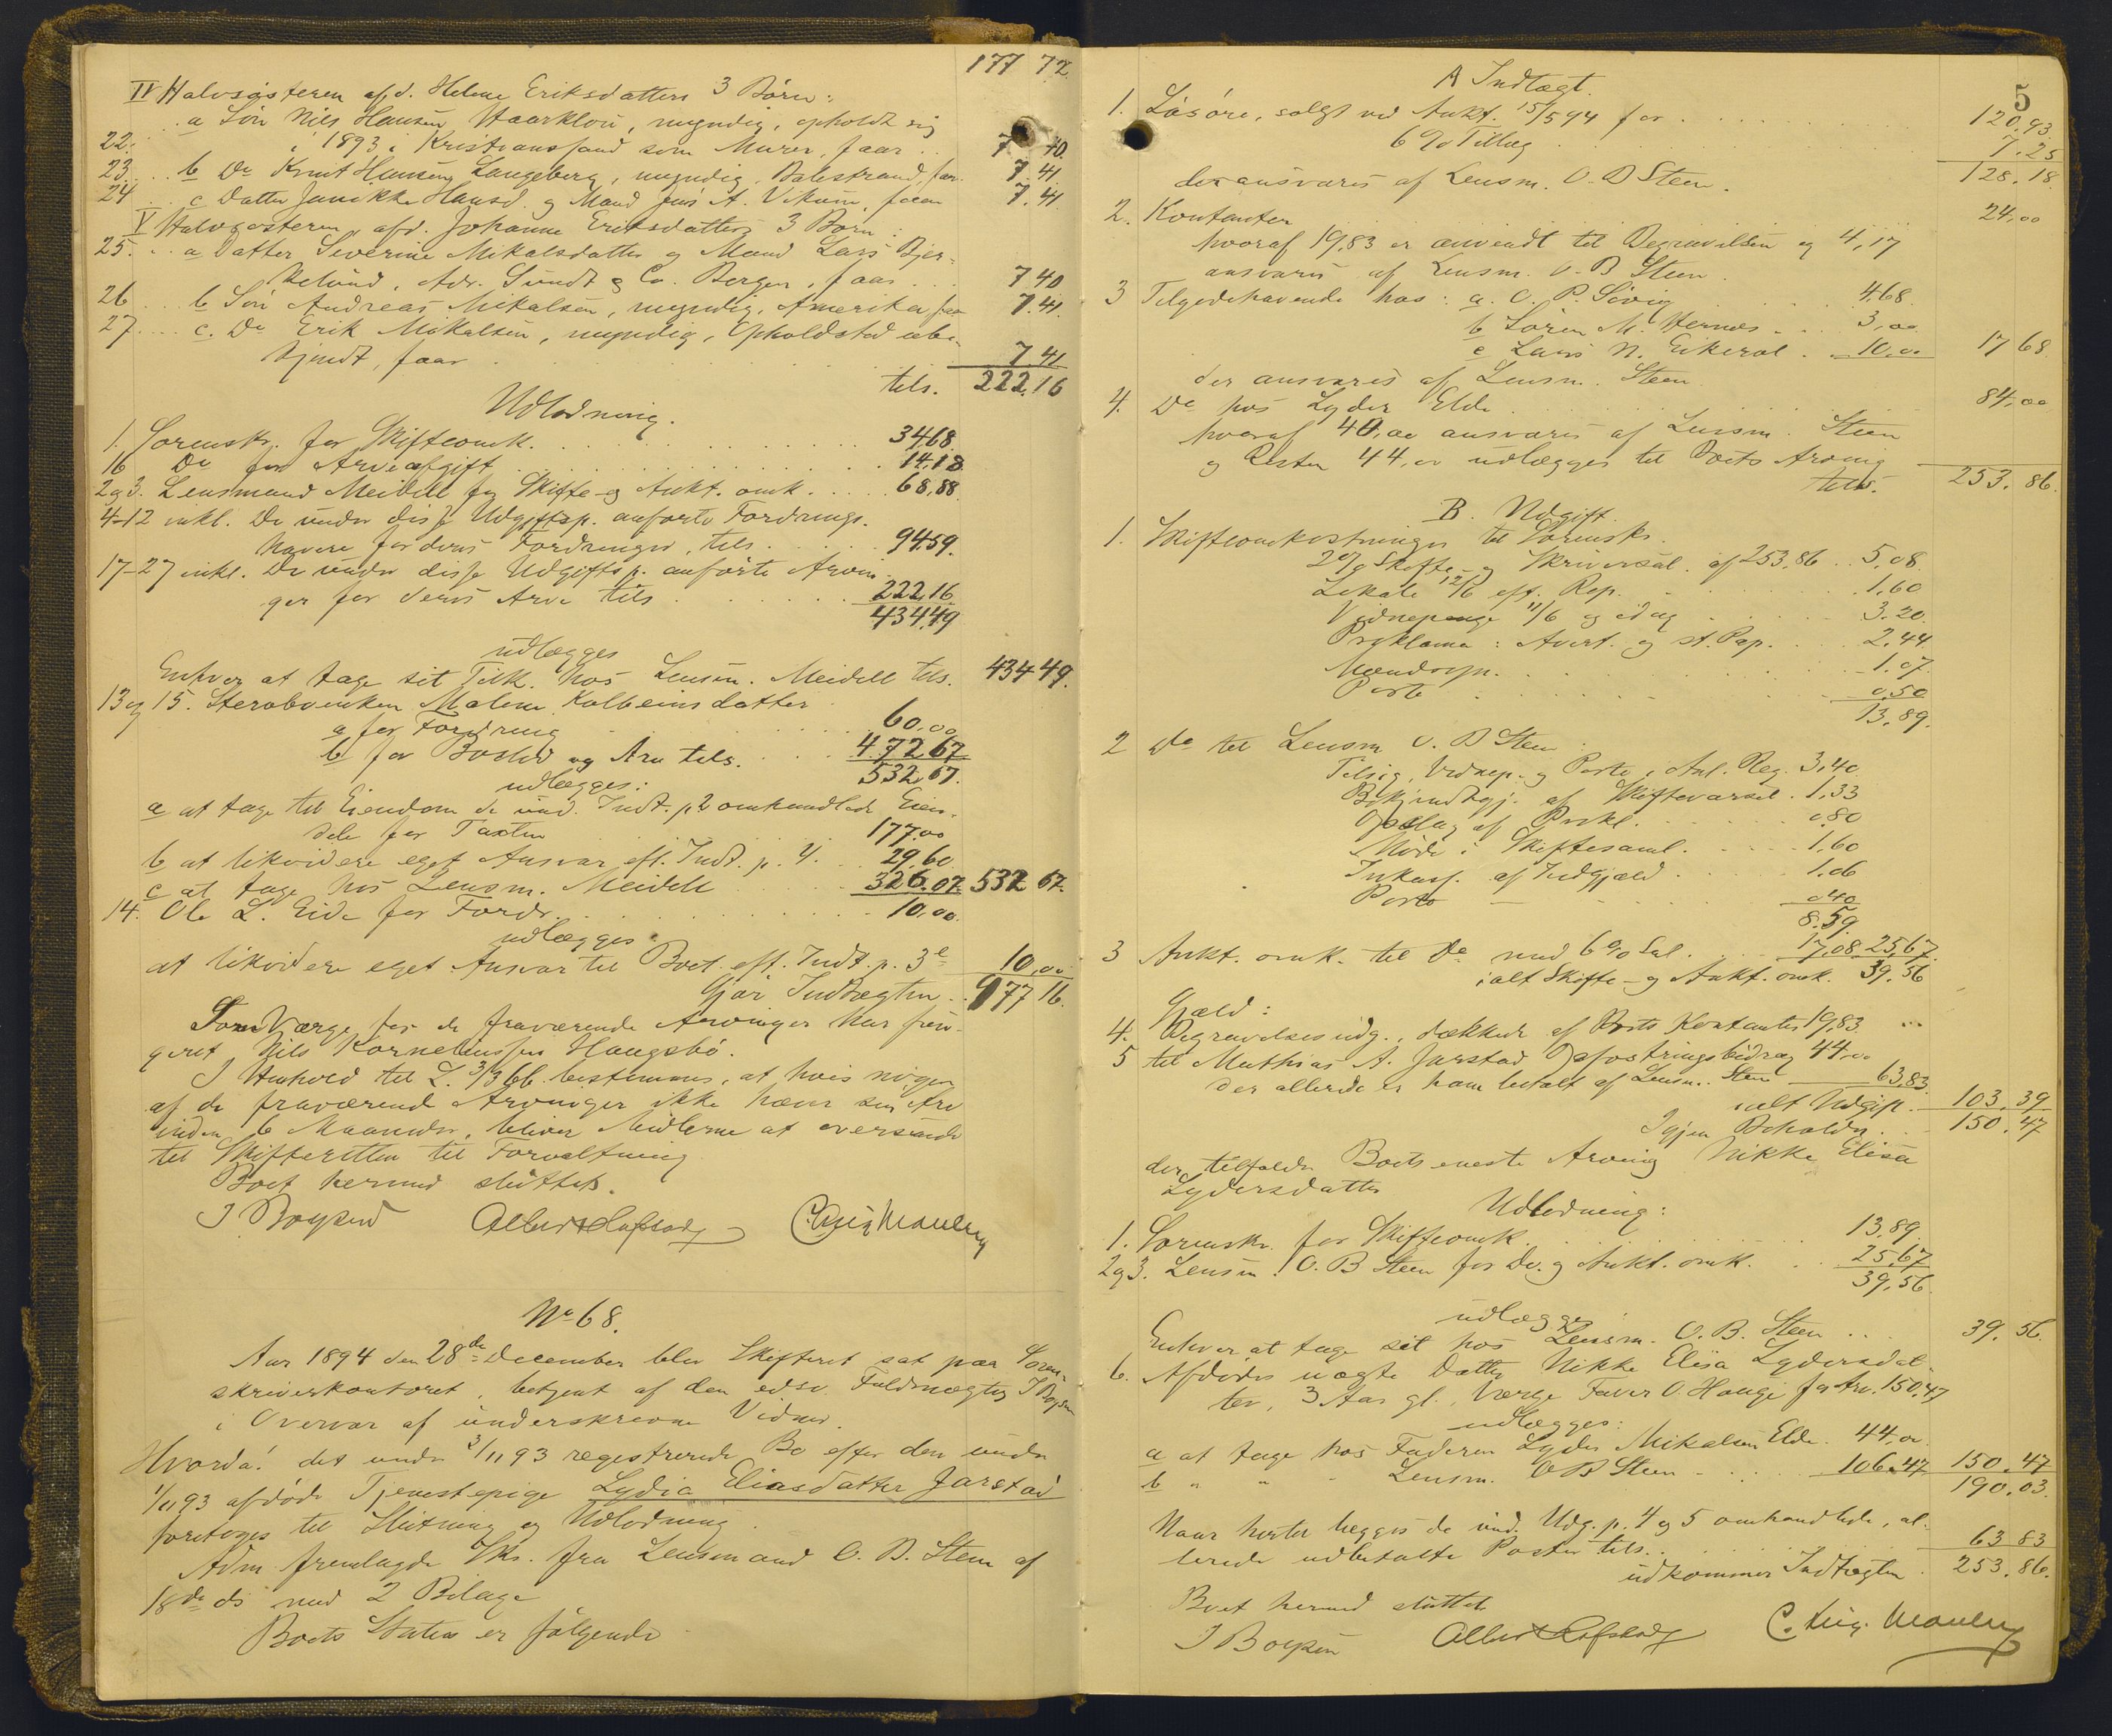 177 72
IV Halvsøsteren afd. Helene Eriksdatters 3 Børn:
a Søn Nils Hansen Haarklou, myndig, opholdt sig
22. i 1893 i Kristianssand som Murer, faar .. 7 40
23 .. b Do Knut Hansen Langeberg, myndig, Balestrand, faar 7.41
24 .. c Datter Janikke Hansd. og Mand Jens A. Vikum, faar 7.41
V Halvsøsteren afd. Johanne Eriksdatters 3 Børn:
25. .. a Datter Severine Mikalsdatter og Mand Lars Bjer-
kelund, Adr. Sundt & Co. Bergen, faar ... 7 40
26 .. b Søn Andreas Mikalsen, myndig, Amerika, faar 7.41
27 .... c. Do Erik Mikalsen, myndig, Opholdssted ube-
kjendt, faar 7 41
tils. 222.16
Udlodning.
1. Sorenskr. for Skifteomk. 34.68
16 Do for Arveafgift 14.18
2 og 3. Lensmand Meidell for Skifte- og Aukt. omk. 68,88
4-12 inkl. De under disse Udgiftsp. anførte Fordrings-
havere for deres Fordringer, tils. 94.59.
17-27 inkl. De under disse Udgiftsp. anførte Arvin-
ger for deres Arv tils 222.16
434.49
udlægges
Enhver at tage sit Tilk. hos Lensm. Meidell tils. 434 49.
13 og 15. Sterboenken Malene Kolbeinsdatter
a for Fordring 60,00
b for Boslod og Arv tils. 472.67
532.67.
udlægges:
a at tage til Eiendom de und. Indt. p. 2 omhandlede Eien-
dele for Taxten 177.00
b at likvidere eget Ansvar eft. Indt. p. 4. 29,60
c at tage hos Lensm. Meidell 326.07 532 67.
14. Ole L. Eide for Fordr. 10,00.
udlægges
at likvidere eget Ansvar til Boet eft. Indt. p. 3e 10,00
Gjør Indtægten .. 977 16.
Som Værge for de fraværende Arvinger har fun-
geret Nils Korneliussen Haugsbø.
I Henhold til L. 3/3 66 bestemmes, at hvis nogen
af de fraværende Arvinger ikke hæver sin Arv
inden 6 Maaneder, bliver Midlerne at oversende
til Skifteretten til Forvaltning
Boet hermed sluttet.
J Boysen Albert Hafstad C. Aug. Mauley
No 68.
Aar 1894 den 28de December blev Skifteret sat paa Soren-
skriverkontoret, betjent af den edsv. Fuldmægtig J Boysen
i Overvær af underskrevne Vidner.
Hvorda! det under 3/11 93 registrerede Bo efter den under
1/11 93 afdøde Tjenestepige Lydia Eliasdatter Jarstad
foretoges til Slutning og Udlodning.
Adm. fremlagde Skr. fra Lensmand O. B. Steen af
18de ds med 2 Bilage
Boets Status er følgende
5
A Indtægt.
1. Løsøre, solgt ved Aukt. 15/5 94 for 120,93.
6% Tillæg 7.25
128.18
der ansvares af Lensm. O. B Steen.
2. Kontanter 24,00
hvoraf 19,83 er anvendt til Begravelsen og 4,17
ansvares af Lensm. O. B Steen.
3 Tilgodehavende hos: a. O. P. Søvig 4.68
b Søren M. Hernes ... 3,00
c Lars N. Eikerol .. 10,00 17 68.
der ansvares af Lensm. Steen
4. Do hos Lyder Elde 84,00
hvoraf 40,00 ansvares af Lensm. Steen
og Resten 44,00 udlægges til Boets Arving
tils. 253.86.
B. Udgift.
1. Skifteomkostninger til Sorenskr.
2% Skifte- og Skriversal. af 253,86 .. 5,08.
Lokale 12/6 eft. Rep. 1,60
Vidnepenge 11/6 og idag 3.20.
Proklama: Avert. og st. Pap. 2,44
Mændsp. 1.07.
Porto 0,50
13,89.
2 Do til Lensm O. B Steen:
Tilsig. Vidnep. og Porto, Anl. Reg. 3,40.
Bekjendtgj. af Skiftevarsel. 1,33
Opslag af Prokl. 0,80
Møde i Skiftesaml. 1,60
Inkass. af Indgjæld 1,06
Porto 0,40
8.59
3 Aukt. omk. til Do med 6% Sal. 17,08. 25,67.
ialt Skifte- og Aukt. omk. 39.56
Gjæld:
4. Begravelsesudg., dækkede af Boets Kontanter 19,83.
5 til Mathias A. Jarstad Opfostringsbidrag 44,00
der allerede er ham betalt af Lensm. Steen 63,83.
ialt Udgift. 103.39
Igjen Beholdn. 150.47
der tilfalder Boets eneste Arving Nikke Elisa
Lydersdatter
Udlodning:
1. Sorenskr. for Skifteomk. 13,89.
2 og 3. Lensm. O. B Steen for Do. og Aukt. omk. 25,67
39,56.
udlægges
Enhver at tage sit hos Lensm. O. B. Steen .. 39.56.
6. Afdødes uægte Datter Nikke Elisa Lydersdat-
ter, 3 Aar gl., Værge Faver O. Hauge for Arv. 150,47
udlægges:
a at tage hos Faderen Lyder Mikalsen Elde. 44,00
b " " - Lensm. O B Steen - 106.47 150.47
190.03.
Naar hertil lægges de und. Udg. p. 4 og 5 omhandlede, al-
lerede udbetalte Poster tils. 63 83
udkommer Indtægten. 253.86.
Boet hermed sluttet
J Boysen Albert Hafstad C. Aug. Mauley